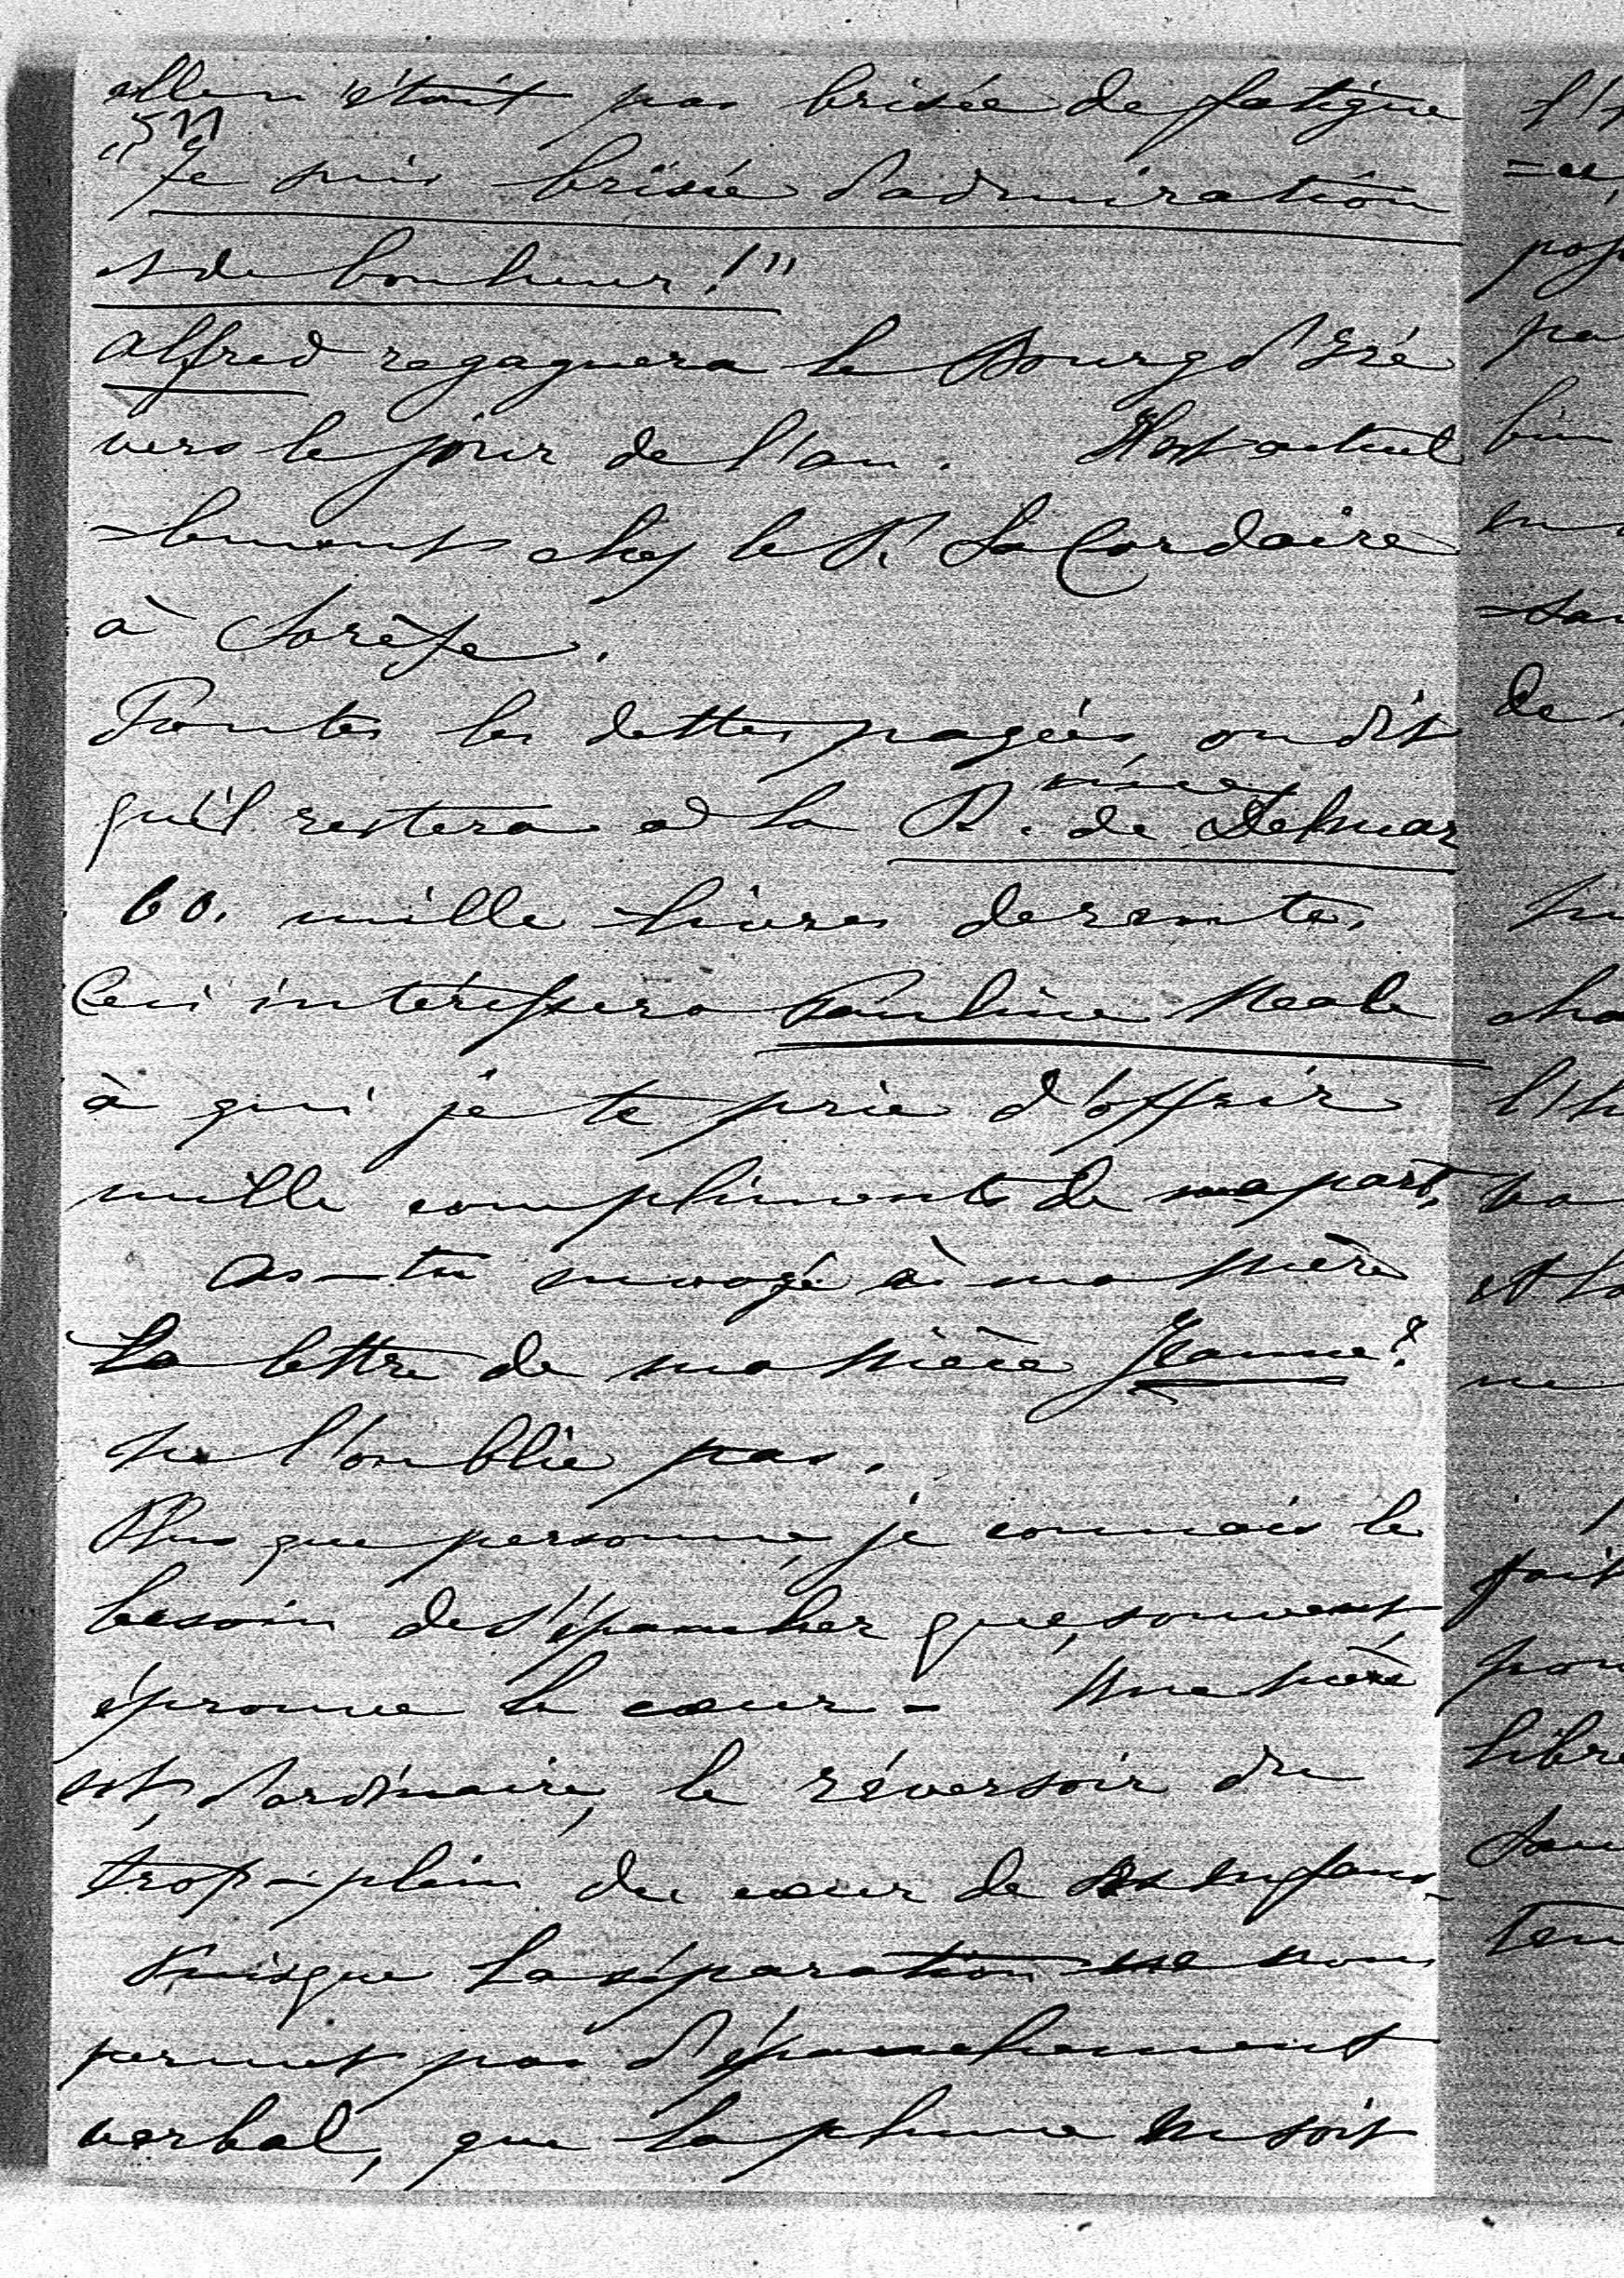 elle n'était pas brisée de fatigue l'
511
"Je suis brisée d'admiration
et de bonheur!"
Alfred regagnera le Bourg d'Iré
vers le jour de l'an. Il est actuel
=lement chez le P. LaCordaire
à Sorèze.
Toutes les dettes payées, on dit
qu'il restera à la P. de
60. mille livres de rentes.
Ceci intéressera Pauline Neale
à qui je te prie d'offrir
mille compliments de ma part,
As-tu envoyé à ma Mère
La lettre de ma Nièce Jeanne?
Ne l'oublie pas.
Plus que personne, je connais le
besoin de s'épancher que, souvent
éprouve le coeur - Une Mère
est, d'ordinaire, le réversoir du
trop-plein du coeur de ses Enfans_
Puisque La séparation ne nous
permet pas d'épanchement
verbal, que la plume en soit